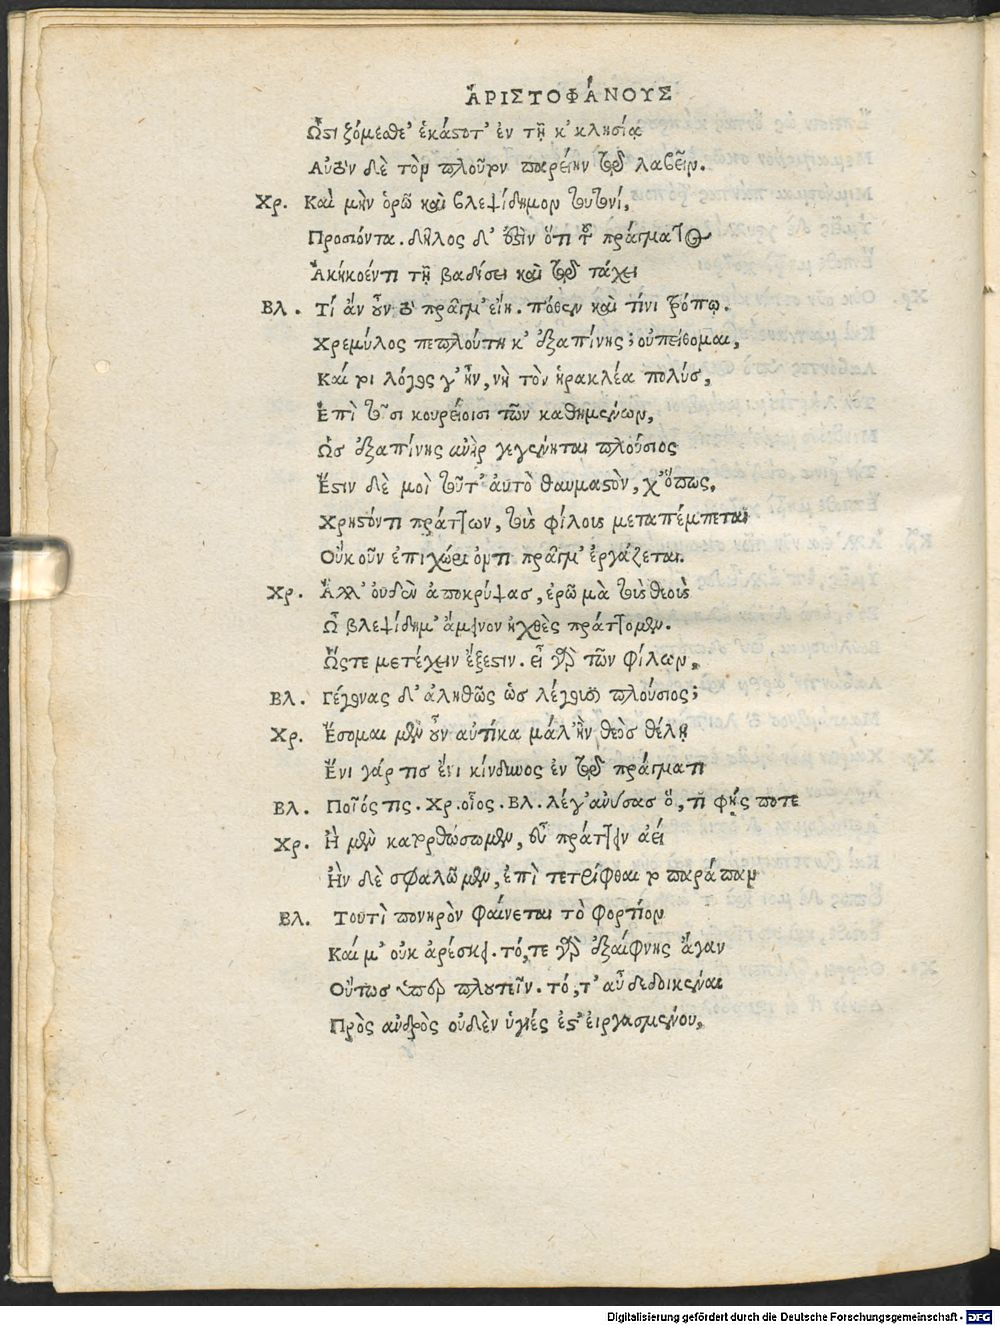 ἈΡΙΣΤΟΦΆΝΟΥΣ
Ὠστιζόμεσθ' ἑκάστοτ' ἐν τῇ κ'κλησίᾳ
Αὐτὸν δὲ τὸν πλοῦτον παρείην τῷ λαβεῖν.
Χρ. Καὶ μὴν ὁρῶ καὶ βλεψίδημον τουτονί,
Προσιόντα. δῆλος δ' ἐστὶν ὅτι τοῦ πράγματος
Ἀκήκοέντι τῇ βαδίσει καὶ τῷ τάχει
Βλ. Τί ἂν οὖν τὸ πρᾶγμ' εἴη. πόθεν καὶ τίνι τρόπῳ.
Χρεμύλος πεπλούτηκ' ἐξαπίνης; οὐ πείθομαι,
Καί τοι λόγος γ' ἦν, νὴ τὸν ἡρακλέα πολύσ,
Ἐπὶ τοῖσι κουρείοισι τῶν καθημένων,
Ὡσ ἐξαπίνης ἀνὴρ γεγένηται πλούσιος
Ἔστιν δὲ μοὶ τοῦτ' ἀυτὸ θαυμαστὸν, χ'ὅπως,
Χρηστόντι πράττων, τοὺσ φίλουσ μεταπέμπεται
Οὔκουν ἐπιχώριόντι πρᾶγμ' ἐργάζεται.
Χρ. Ἀλλ' οὐδὲν ἀποκρύψασ, ἐρῶ μὰ τοὺσ θεοὺσ
Ὦ βλεψίδημ' ἄμεινον ἢ χθὲς πράττομεν.
Ὥστε μετέχειν ἔξεστιν. εἶ γὰρ τῶν φίλων,
Βλ. Γέγονας δ' ἀληθῶς ὡσ λέγουσι πλούσιος;
Χρ. Ἔσομαι μὲν οὖν αὐτίκα μάλ' ἢν θεὸσ θέλῃ
Ἔνι γάρ τισ ἔνι κίνδυνος ἐν τῷ πράγματι
Βλ. Ποῖός τις. Χρ. οἷος. Βλ. λέγ' ἀνύσασ ὅ, τι φῄς ποτε
Χρ. Ἢ μὲν κατορθώσωμεν, εὖ πράττειν ἀεί
Ἢν δὲ σφαλῶμεν, ἐπὶ τετρίφθαι τὸ παράπαν
Βλ. Τουτὶ πονηρὸν φαίνεται τὸ φορτίον
Καί μ' οὐκ ἀρέσκει. τό,τε γὰρ ἐξαίφνης ἄγαν
Οὕτωσ ὑπερ πλουτεῖν. τό,τ' αὖ δεδοικέναι
Πρὸς ἀνδρὸς οὐδὲν ὑγιές ἐστ' εἰργασμένου,
Digitalisierung gefördert durch die Deutsche Forschungsgemeinschaft - DFG